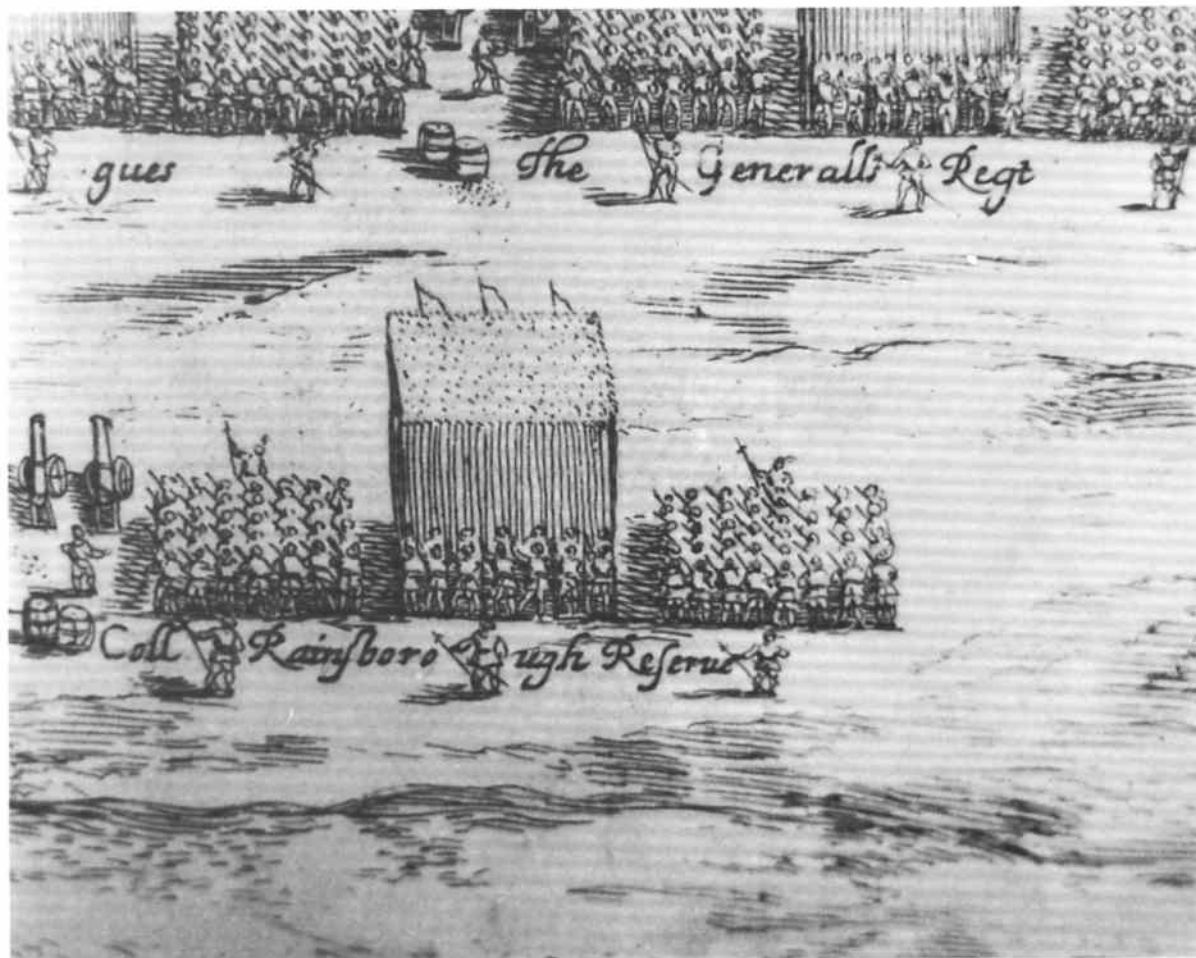 gues The Generalls Regt
Coll Rainſborough Reſerue